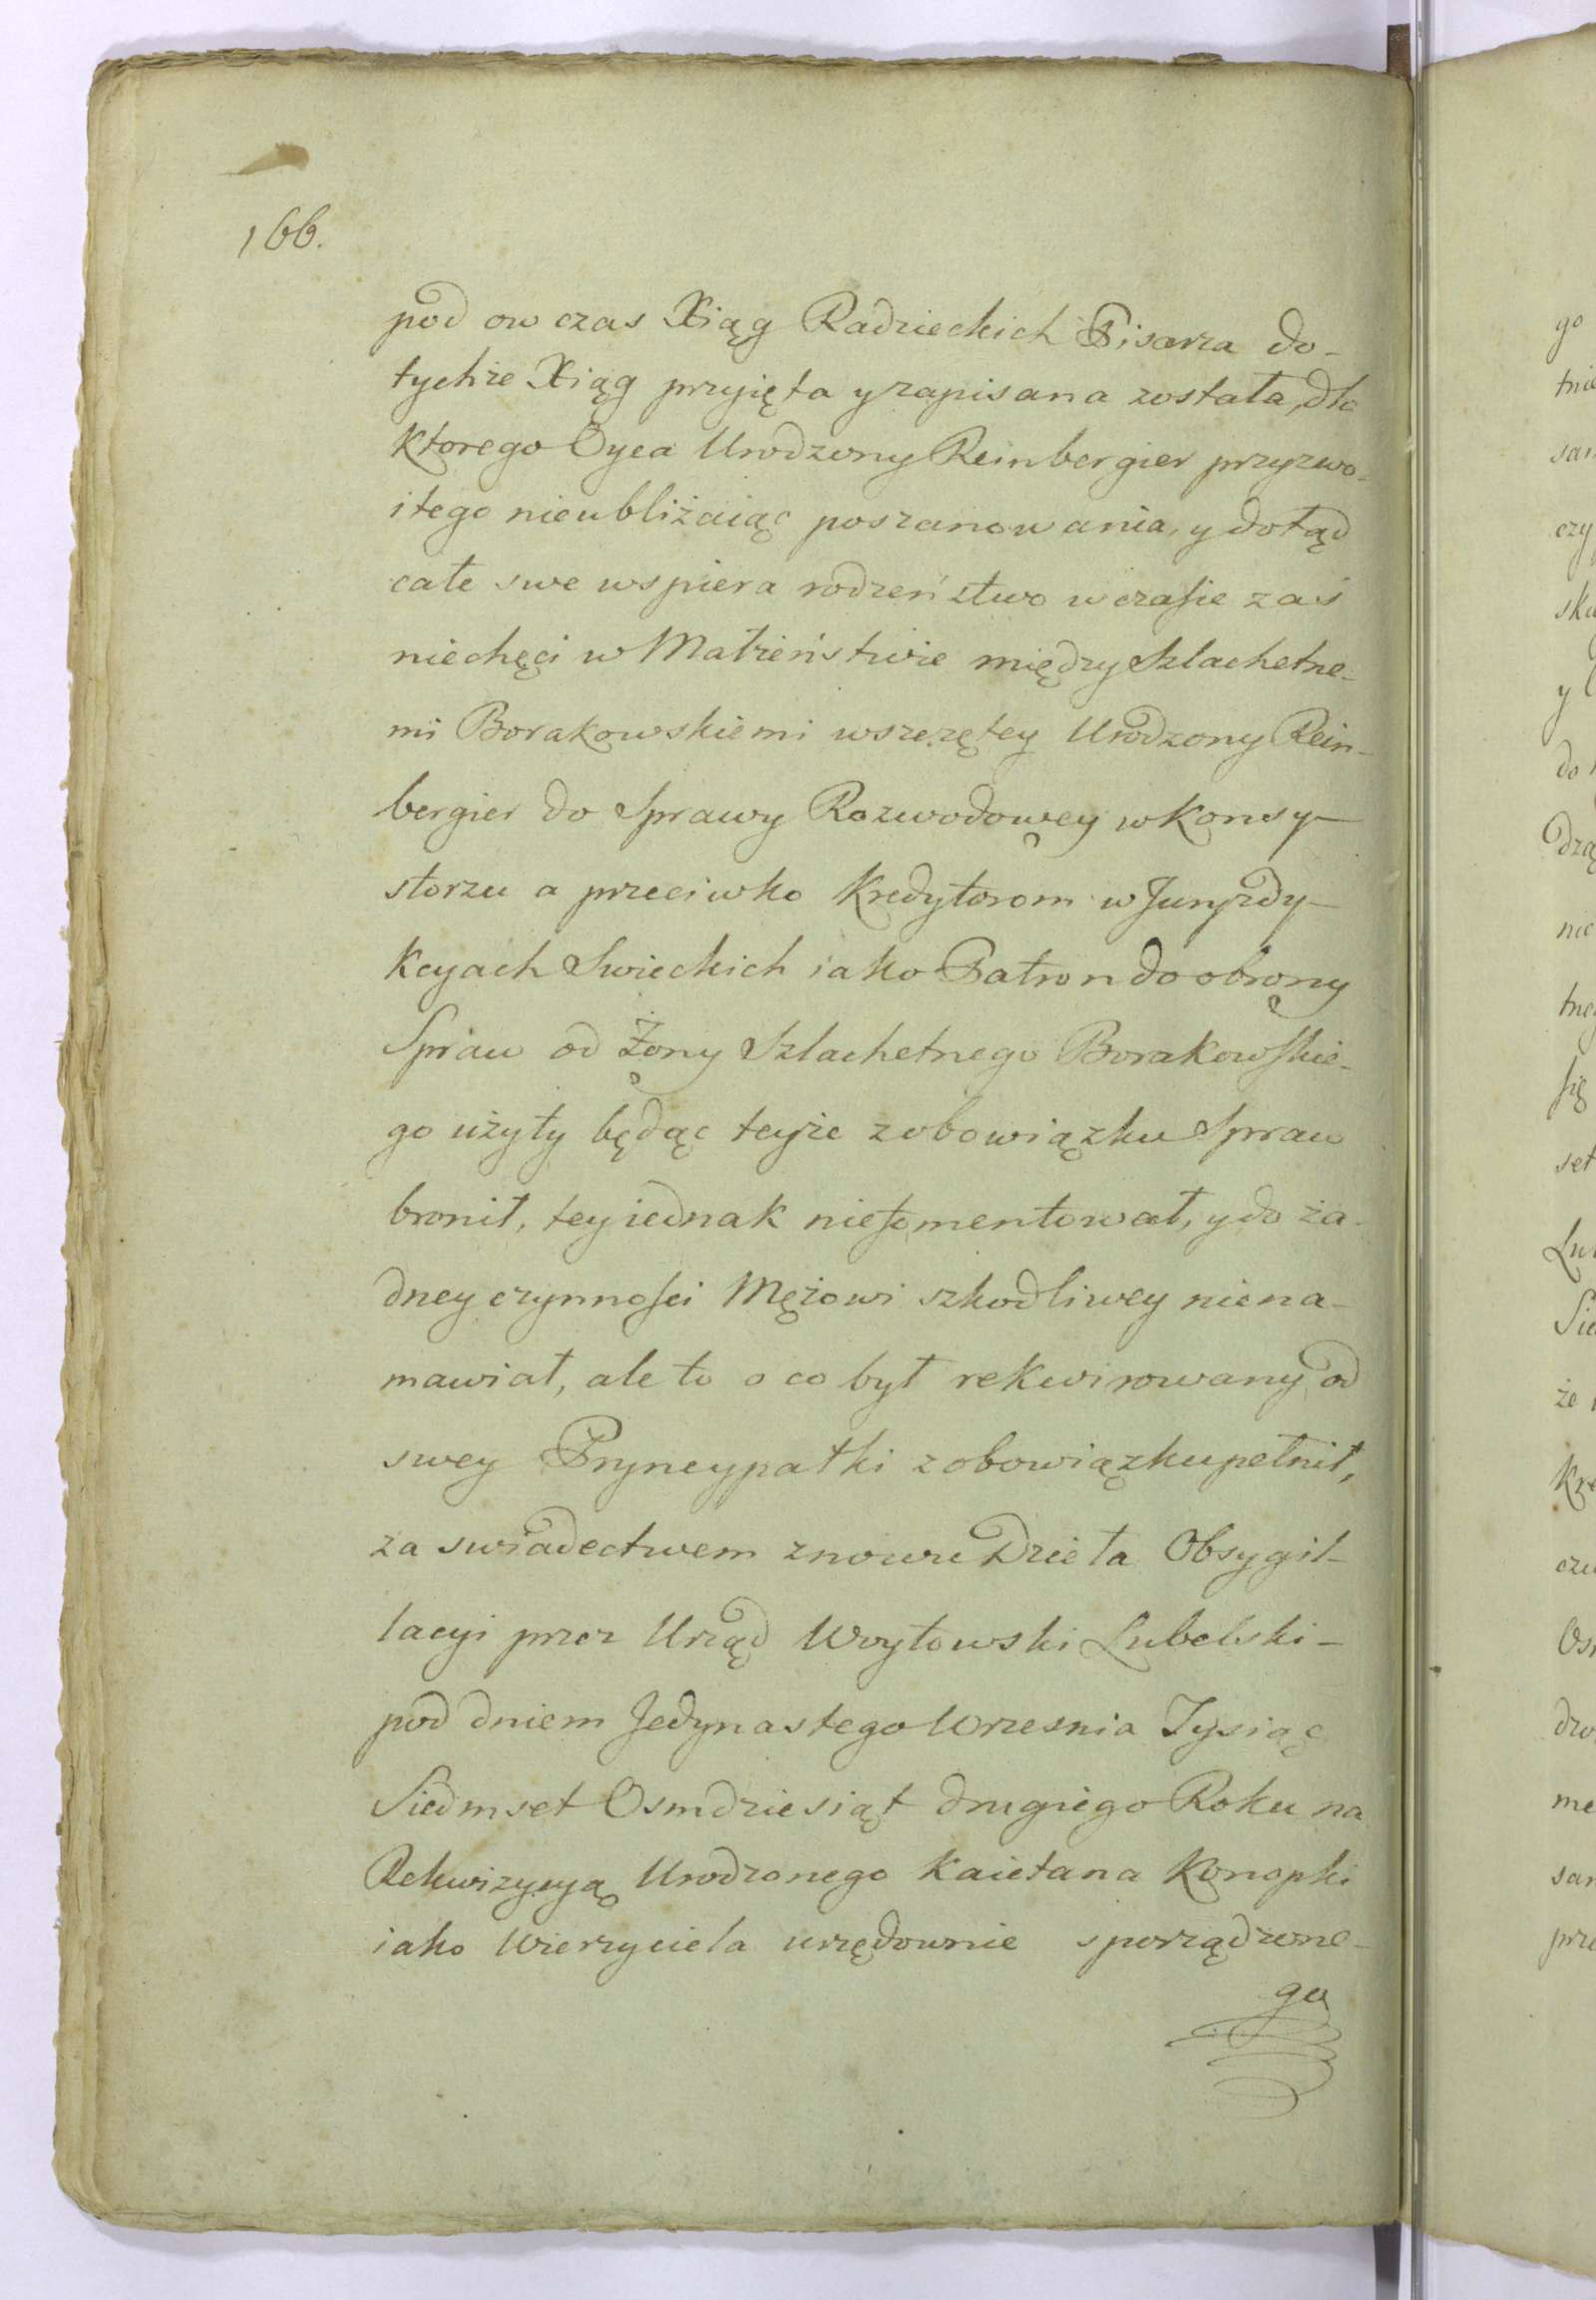 166.
pod ow czas Xiąg Radzieckich Pisarza do-
tychże Xiąg przyięta y zapisana została, dla
ktorego Oyca Urodzony Reinbergier przyzwo-
itego nieubliżaiąc poszanowania, y dotąd
całe swe wspiera rodzeństwo w czasie zaś
niechęci w Małżeństwie między Szlachetne-
mi Borakowskiemi wszczętey Urodzony Rein-
bergier do Sprawy Rozwodowey w Konsy-
storzu a przeciwko Kredytorom w Juryzdy-
kcyach Swieckich iako Patron do obrony
Spraw od Żony Szlachetnego Borakowskie-
go użyty będąc teyże z obowiązku Spraw
bronił, tey iednak niefomentował, y do ża-
dney czynności Mężowi szkodliwey niena-
mawiał, ale to o co był rekwirowany od
swey Pryncypałki z obowiązku pełnił,
za swiadectwem znowu Dzieła Obsygil-
lacyi przez Urząd Woytowski Lubelski-
pod dniem Jedynastego Wrzesnia Tysiąc
Siedmset Osmdziesiąt drugiego Roku na
Rekwizycyą Urodzonego Kaietana Konopki
iako Wierzyciela urzędownie sporządzone-
go
go
tnie
san
czy
ska
y
do
drą
nie
tney
się
set
Lu
Sie
że
Kre
czu
Os
dro
me
san
prze